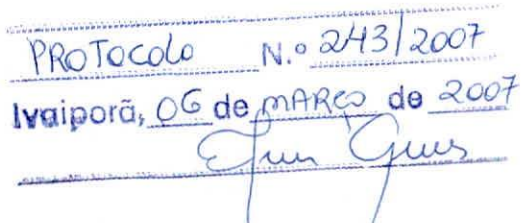 PROTOCOLO N.º 243/2007
Ivaiporã, 06 de MARÇO de 2007